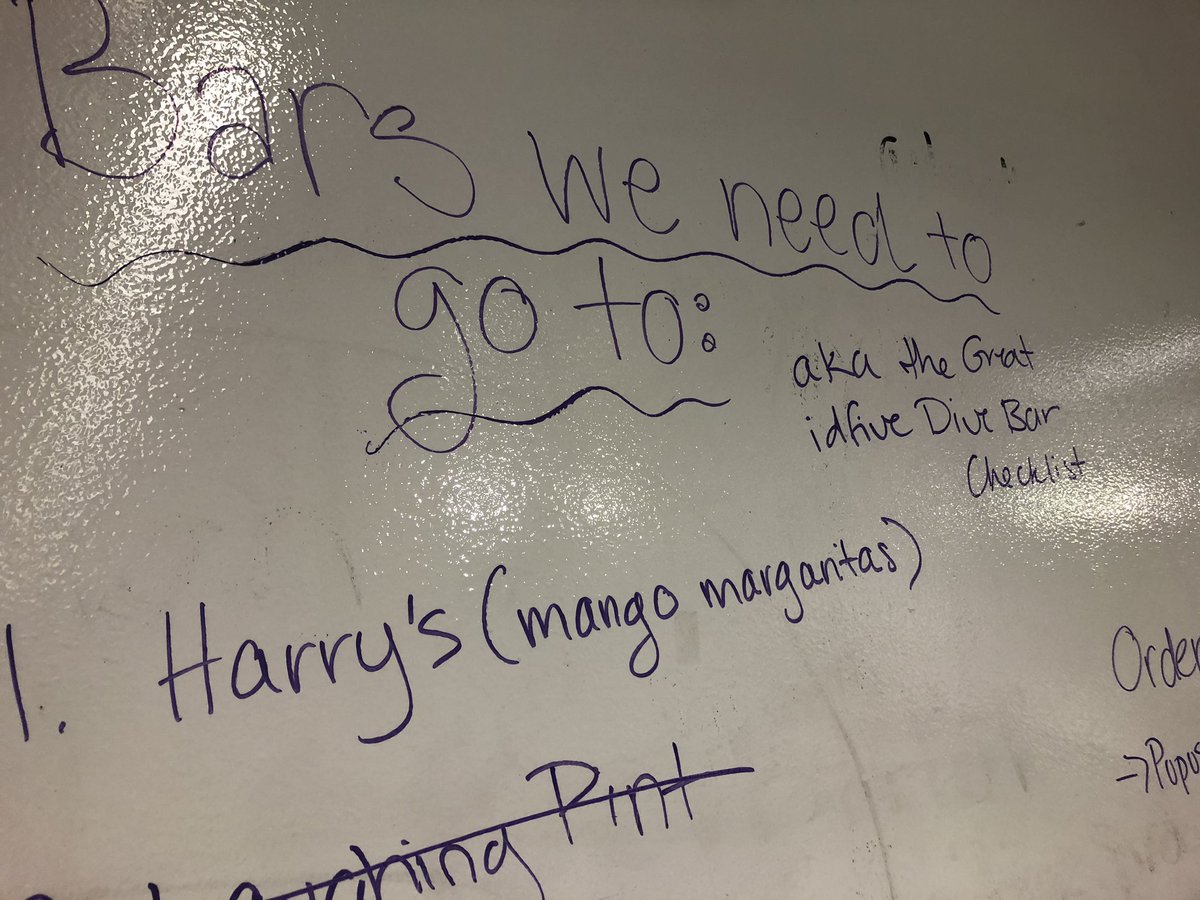 Bars we need to
go to:
aka the Great
idfive Dive Bar
Checklist
1. Harry's (mango margaritas)
Order
Laughing Pint